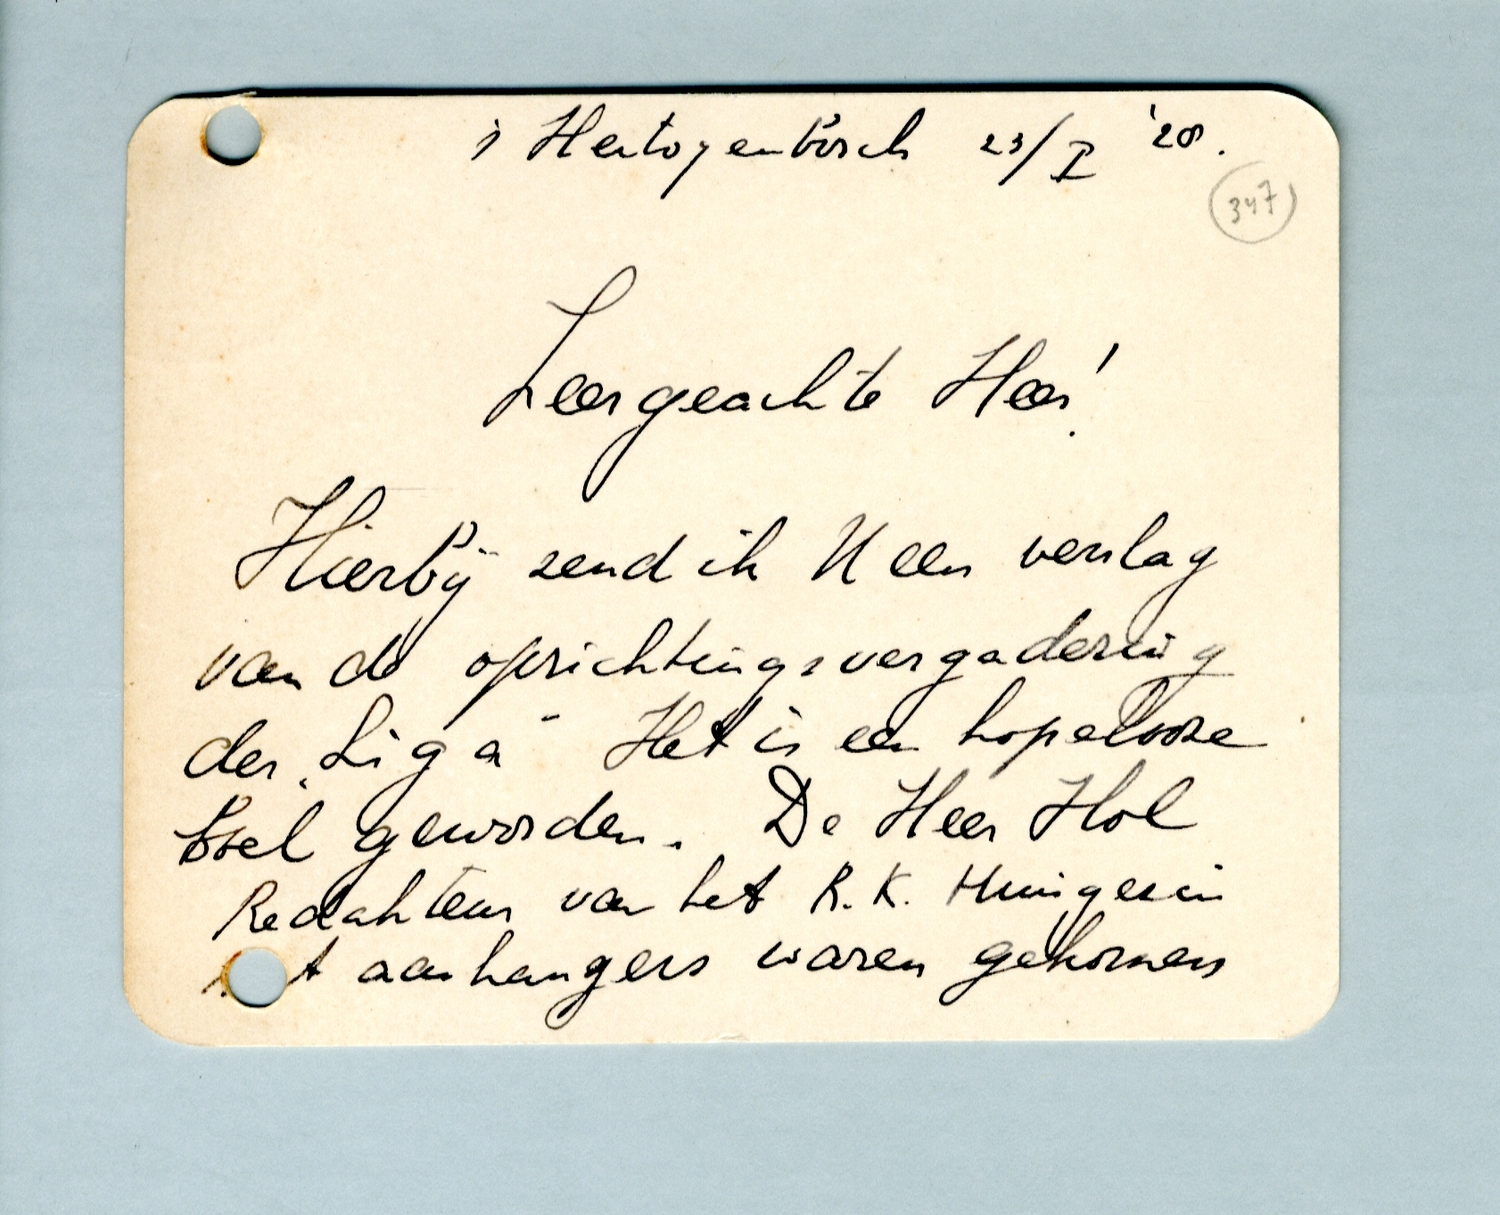 's Hertogenbosch 23/X '28.
347
Zeergeachte Heer!
Hierbij zend ik U een verslag
van de oprichtingsvergadering
der „Liga" Het is een hopelooze
boel geworden. De Heer Hol
Redakteur van het R.K. Huisgezin
aanhangers waren gekomen